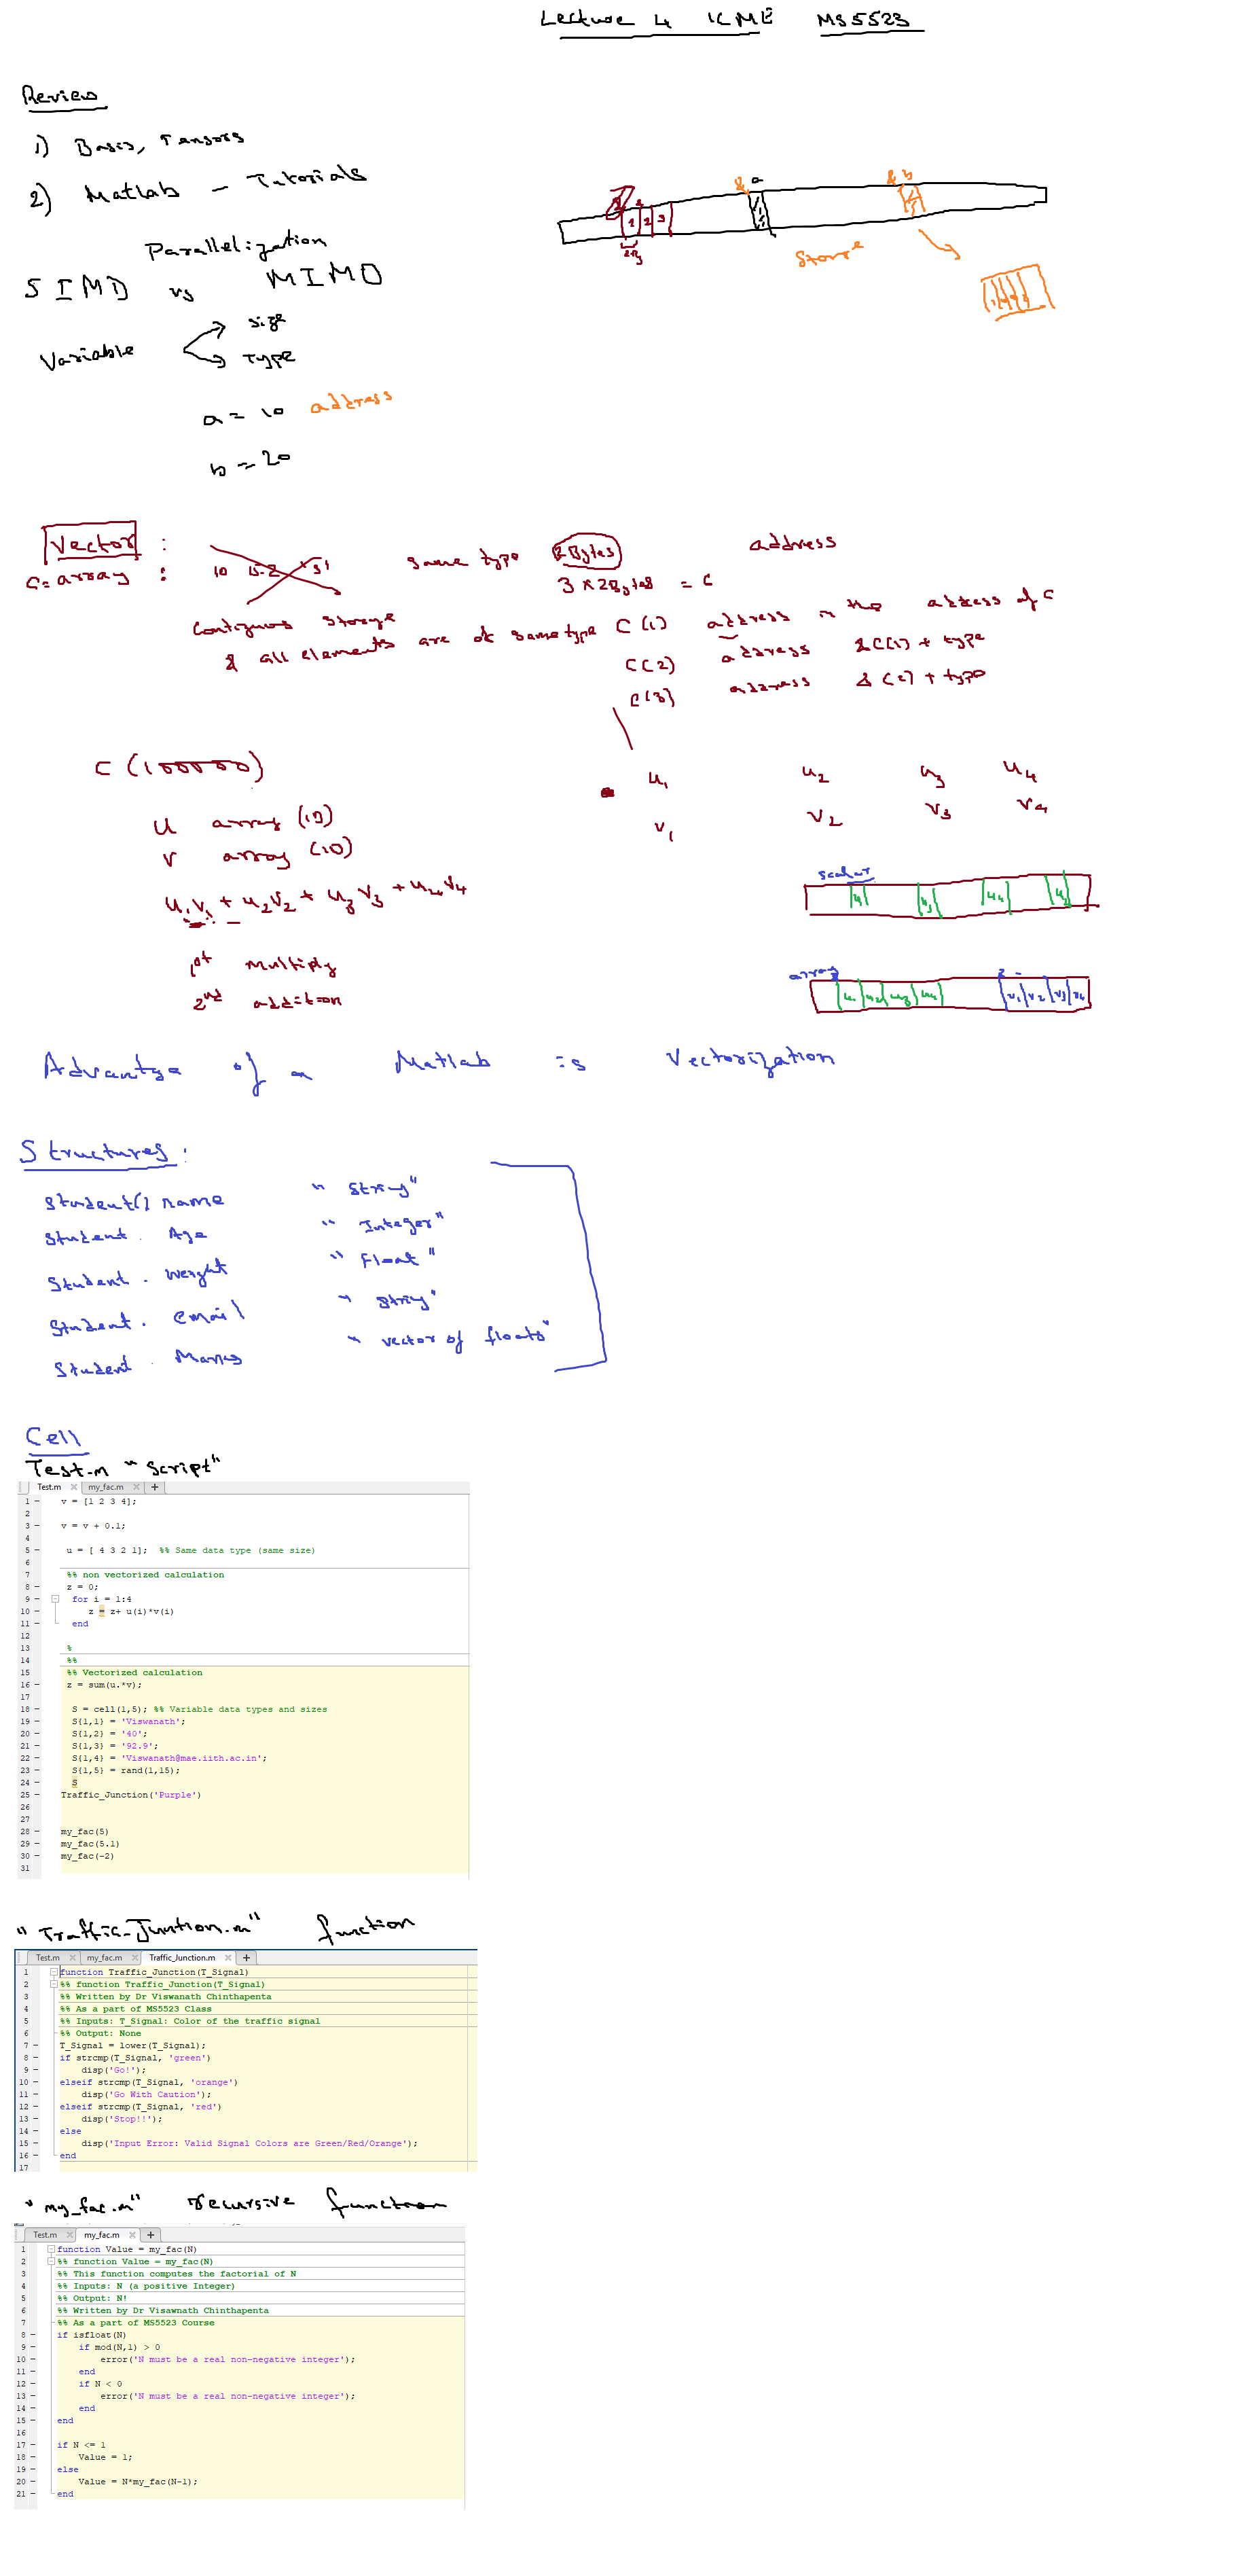 Lecture 4 ICME MS5523
Review
1) Basis, Tensors
2) Matlab - Tutorials
Parallelization
SIMD vs MIMD
Variable
size
Type
a = 10 address
b = 20
a
& b
1 2 3
2By
Storage
Vector :
c = array : 10 15.2 'S' same type 2 Bytes address
3 x 2Bytes = C
Contiguos storage
& all elements are of same type
C(1) address is the address of C
C(2) address &C(1) + type
C(3) address &C(2) + type
C (100000)
u array (10)
v array (10)
u1v1 + u2v2 + u3v3 + u4v4
1st multiply
2nd addition
u1 u2 u3 u4
v1 v2 v3 v4
scalar
array
u1 u2 u3 u4 v1 v2 v3 v4
Advantage of a Matlab is Vectorization
Structures:
Student() name "String"
Student . Age "Integer"
Student . Weight "Float"
Student . email "String"
Student . Marks "vector of floats"
Cell
Test.m "Script"
Test.m my_fac.m
1 v = [1 2 3 4];
2
3 v = v + 0.1;
4
5 u = [ 4 3 2 1]; %% Same data type (same size)
6
7 %% non vectorized calculation
8 z = 0;
9 for i = 1:4
10 z = z+ u(i)*v(i)
11 end
12
13 %
14 %%
15 %% Vectorized calculation
16 z = sum(u.*v);
17
18 S = cell(1,5); %% Variable data types and sizes
19 S{1,1} = 'Viswanath';
20 S{1,2} = '40';
21 S{1,3} = '92.9';
22 S{1,4} = 'Viswanath@mae.iith.ac.in';
23 S{1,5} = rand(1,15);
24 S
25 Traffic_Junction('Purple')
26
27
28 my_fac(5)
29 my_fac(5.1)
30 my_fac(-2)
31
"Traffic_Juntion.m" function
Test.m my_fac.m Traffic_Junction.m
1 function Traffic_Junction(T_Signal)
2 %% function Traffic_Junction(T_Signal)
3 %% Written by Dr Viswanath Chinthapenta
4 %% As a part of MS5523 Class
5 %% Inputs: T_Signal: Color of the traffic signal
6 %% Output: None
7 T_Signal = lower(T_Signal);
8 if strcmp(T_Signal, 'green')
9 disp('Go!');
10 elseif strcmp(T_Signal, 'orange')
11 disp('Go With Caution');
12 elseif strcmp(T_Signal, 'red')
13 disp('Stop!!');
14 else
15 disp('Input Error: Valid Signal Colors are Green/Red/Orange');
16 end
17
"my_fac.m" recursive function
Test.m my_fac.m
1 function Value = my_fac(N)
2 %% function Value = my_fac(N)
3 %% This function computes the factorial of N
4 %% Inputs: N (a positive Integer)
5 %% Output: N!
6 %% Written by Dr Visawnath Chinthapenta
7 %% As a part of MS5523 Course
8 if isfloat(N)
9 if mod(N,1) > 0
10 error('N must be a real non-negative integer');
11 end
12 if N < 0
13 error('N must be a real non-negative integer');
14 end
15 end
16
17 if N <= 1
18 Value = 1;
19 else
20 Value = N*my_fac(N-1);
21 end